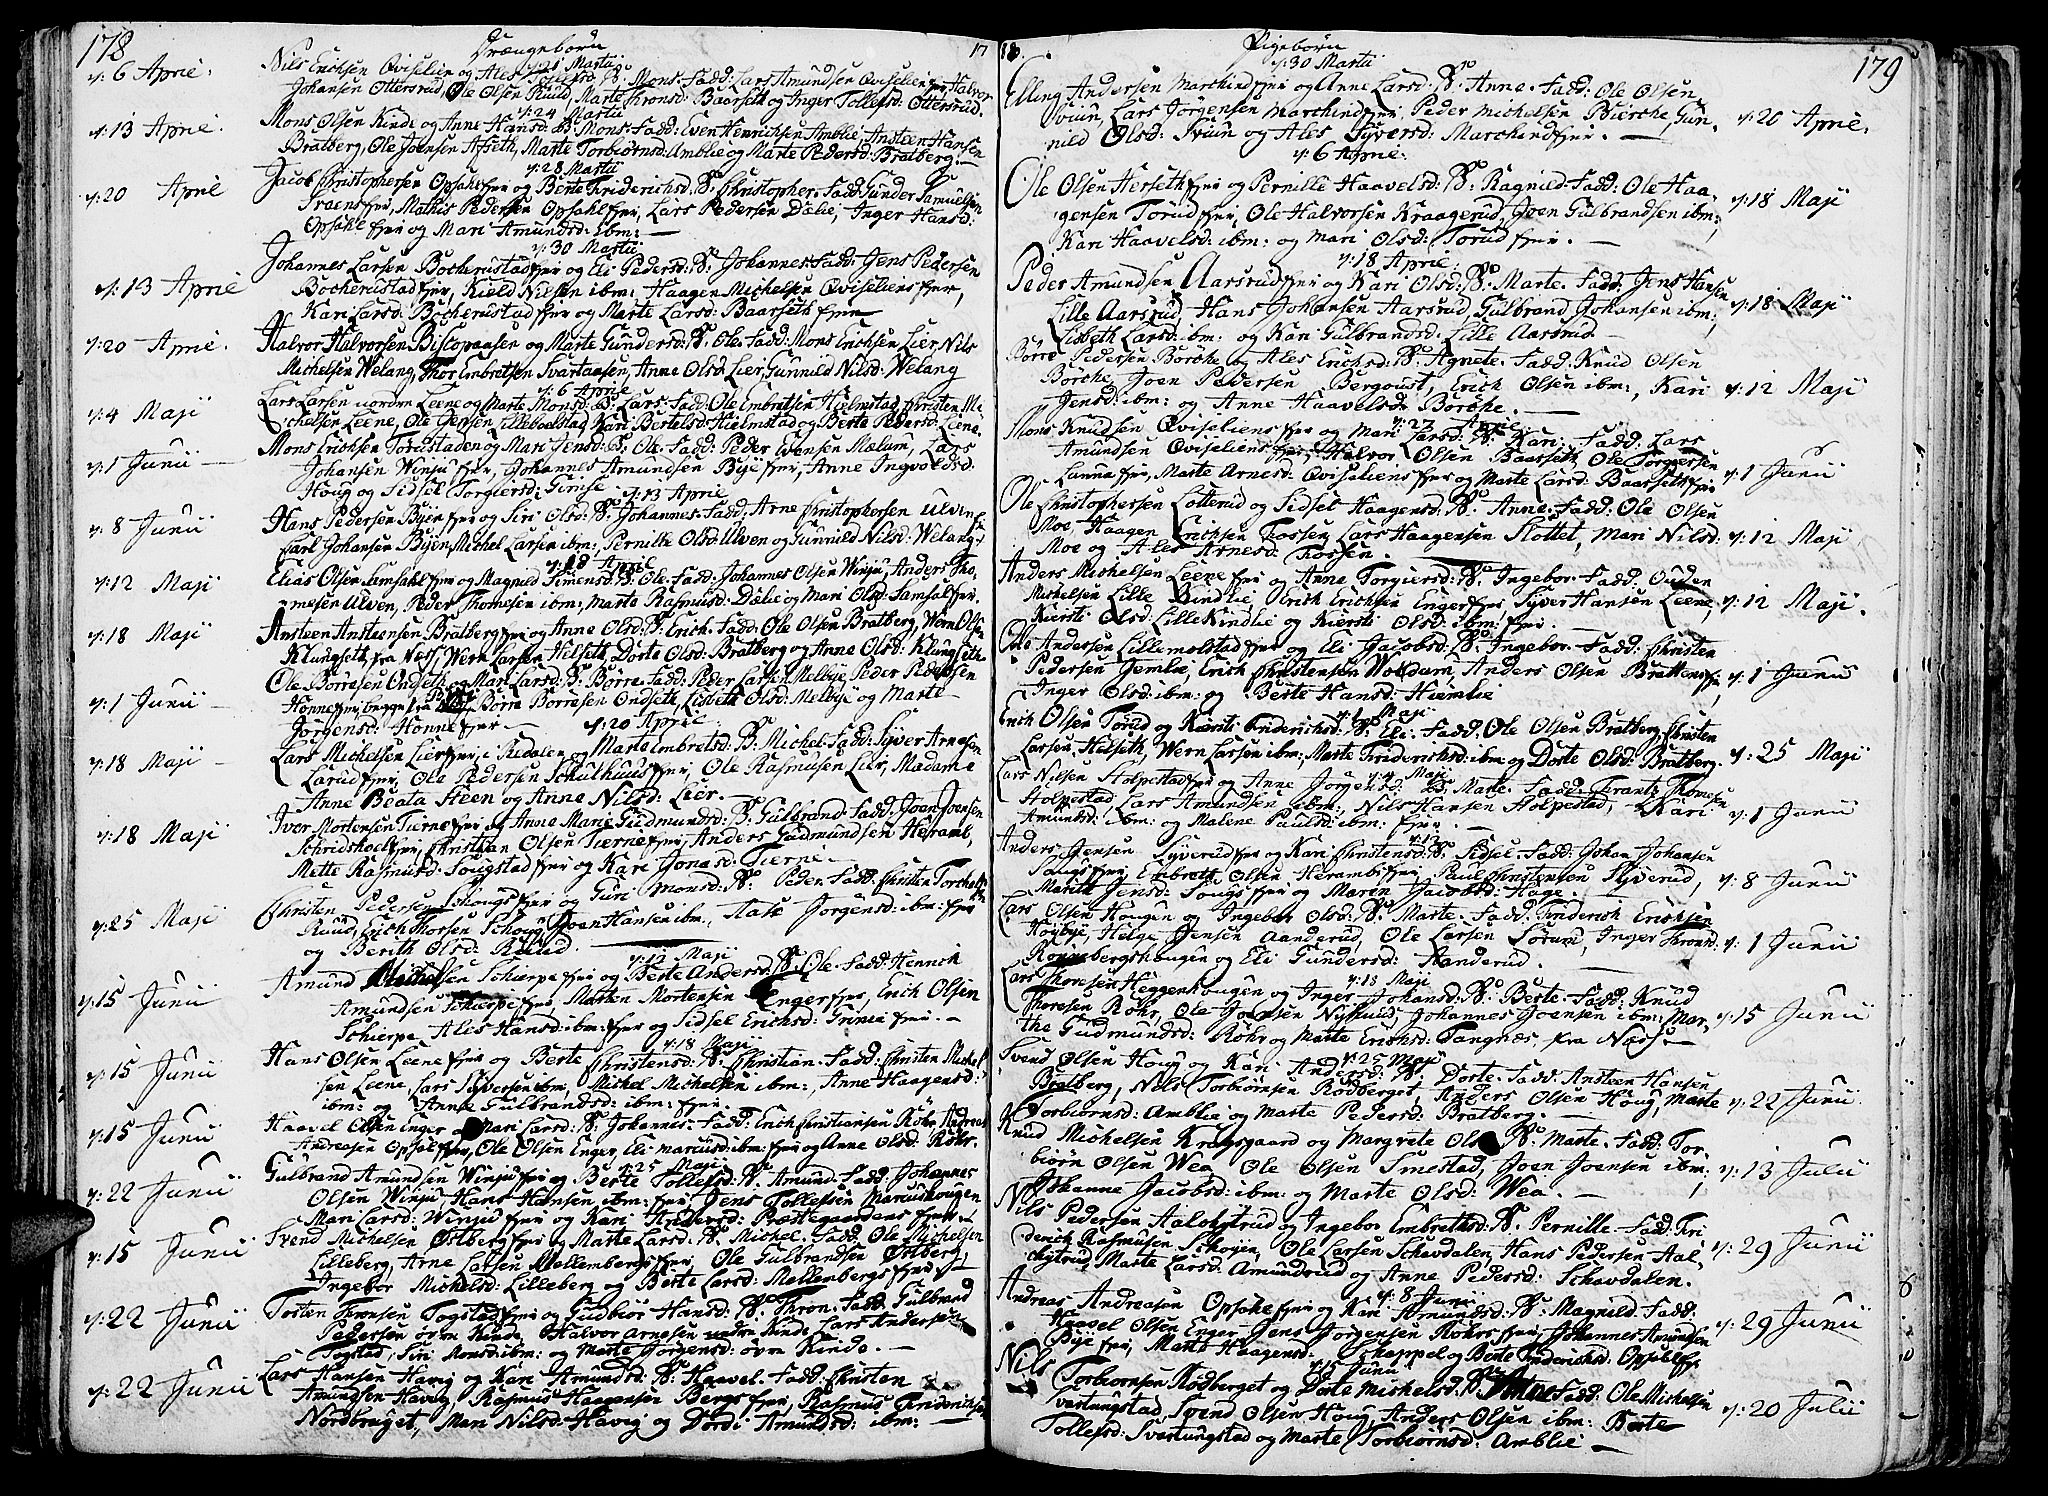 178
Drængebörn
17
d: 21 Martii
d: 6 April: Nils Erichsen Qviselien og Ales Olufsd: B: Mons. Fadd: Lars Amundsen Qviselien fier, Halvor
Johansen Ottersrud, Ole Olsen Ruud, Marte Tronsd: Baarseth og Inger Tollefsd: Ottersrud.
d: 24 Martii
d: 13 April: Mons Olsen Kinde og Anne Hansd: B: Mons. Fadd: Even Henrichsen Amblie, Ansteen Hansen
Bratberg, Ole Joensen Afseth, Marte Torbiörnsd: Amblie og Marte Pedersd: Bratberg. —
d: 28 Martii
d: 20 April Jacob Christophersen Opsahl fier og Berte Friderichsd: B: Christopher. Fadd: Gunder Samuelsen
Præens fier, Mathis Pedersen Opsahl fier, Lars Pedersen Dælie, Inger Hansd:
Opsahl fier og Mari Amundsd: ibm: —
d: 30 Martii
d: 13 April Johannes Larsen Bocherustad fier og Eli Pedersd: B: Johannes. Fadd: Jens Pedersen
Bocherustad fier, Kield Nilsen ibm: Haagen Michelsen Qviseliens fier,
Kari Larsd: Bocherustad fier og Marte Larsd: Baarseth fier
d: 20 April. Halvor Halvorsen Bistopaasen og Marte Gundersd: B: Ole. Fadd: Mons Erichsen Lier, Nils
Michelsen Welang, Thor Embretsen Svartaasen, Anne Olsd: Lier, Gunnild Nilsd: Welang
d: 6 April
d: 4 Maji Lars Larsen nordre Leene og Marte Monsd: B: Lars. Fadd: Ole Embretsen Hielmstad, Christen Mi-
chelsen Leene, Ole Jensen Lilleboelstad, Kari Bertelsd: Hielmstad og Berte Pedersd: Leene.
d: 1 Junii — Mons Erichsen Torudstaden og Mari Jensd: B: Ole. Fadd: Peder Evensen Mælum, Lars
Johansen Winju fier, Johannes Amundsen Bye fier, Anne Ingvoldsd:
Houg og Sidsel Torgiersd: Grimse
d: 13 April
d: 8 Junii Hans Pedersen Byen fier og Siri Olsd: B: Johannes. Fadd: Arne Christophersen Ulven
Carl Johansen Byen, Michel Larsen ibm:, Pernille Olsd: Ulven og Gunnild Nilsd: Welang.
d: 18 April
d: 12 Maji Elias Olsen Samsahl fier og Magnild Simensd: B: Ole. Fadd: Johannes Olsen Winju, Anders Tho-
mesen Ulven, Peder Thomesen ibm:, Marte Rasmusd: Dælie og Mari Olsd: Samsal fier.
d: 18 Maji Ansteen Ansteensen Bratberg fier og Anne Olsd: B: Erich. Fadd: Ole Olsen Bratberg, Wern Olsen
Klungseth fra Næss, Wern Larsen Helseth, Dorte Olsd: Bratberg og Anne Olsd: Klungseth
d: 1 Junii — Ole Börresen Ondseth og Mari Larsd: B: Börre. Fadd: Peder Larsen Melbye, Peder Pedersen
Honne fier, begge fra Börre Börresen Ondseth, Lisbeth Olsd: Melbye og Marte
Jörgensd: Honne fier —
d: 20 April:
d: 18 Maji — Lars Michelsen Lier fier, i Redalen og Marte Embretsd: B: Michel. Fadd: Syver Arnesen
Larud fier, Ole Pedersen Schulhuus fier, Ole Rasmusen Lier, Madame
Anne Beata Steen og Anne Nilsd: Lier.
d: 18 Maji Iver Mortensen Tierne fier og Anne Marie Gudmundsd: B: Gulbrand. Fadd: Joen Joensen
Schridshoel fier, Christian Olsen Tierne fier, Anders Gudmundsen Heramb,
Mette Rasmusd: Sougstad fier og Kari Jonasd: Tierne —
d: 25 Maji Christen Pedersen Schougs fier og Guri Monsd: B: Peder. Fadd: Christen Torchelsen
Ruud, Erich Thorsen Schoug, Joen Hansen ibm:, Aase Jörgensd: ibm: fier
og Berith Olsd: Ruud
d: 12 Maji
d: 15 Junii Amund Michelsen Schierpe fier og Berte Andersd: B: Ole. Fadd: Henrich
Amundsen Schierpe fier, Morten Mortensen Enger fier, Erich Olsen
Schierpe, Ales Hansd: ibm: fier og Sidsel Erichsd: Grimse fier. —
d: 18 Maji
d: 15 Junii Hans Olsen Leene fier og Berte Christensd: B: Christian. Fadd: Christen Michel-
sen Leene, Lars Syversen ibm, Michel Michelsen ibm:, Anne Haagensd:
ibm: og Anne Gulbrandsd: ibm: fier.
d: 15 Junii Haavel Olsen Enger og Mari Larsd: B: Johannes. Fadd: Erich Christiansen Röhr, Andreas
Andreasen Opsal fier, Ole Olsen Enger, Eli Marcusd: ibm: fier og Anne Olsd: Röhr.
d: 25 Maji
d: 22 Junii Gulbrand Amundsen Winju fier og Berte Tollefsd: B: Amund. Fadd: Johannes
Olsen Winju, Hans Hansen ibm: fier, Jens Tollefsen Marcushougen
Mari Larsd: Winju fier og Kari Andersd: Præstegaardens fier —
d: 15 Junii Svend Michelsen Östberg fier og Marte Larsd: B: Michel. Fadd: Ole Michelsen
Lilleberg, Arne Larsen Mellenbergs fier, Ole Gulbrandsen Östberg,
Ingebor Michelsd: Lilleberg og Berte Larsd: Mellenbergs fier, —
d: 22 Junii Torsten Tronsen Togstad fier og Gudbior Hansd: B: Thron. Fadd: Gulbrand
Pedersen övre Kinde, Halvor Arnesen nedre Kinde, Lars Andersen
Togstad, Siri Monsd: ibm: og Marte Jörgensd: övre Kinde. —
d: 22 Junii Lars Hansen Havig og Kari Amundsd: B: Haavel. Fadd: Christen
Amundsen Havig, Rasmus Haagensen Bergs fier, Rasmus Friderichsen
Nordbraget, Mari Nilsd: Havig og Dordi Amundsd: ibm: —
18.
Pigebörn
179
d: 30 Martii
Elling Andersen Marchind fier og Anne Larsd: B: Anne. Fadd: Ole Olsen
Sviun, Lars Jörgensen Marchind fier, Peder Michelsen Bierche, Gun- d: 20 April.
nild Olsd: Sviun og Ales Syversd: Marchind fier. —
d: 6 April:
Ole Olsen Herseth fier og Pernille Haavelsd: B: Ragnild. Fadd: Ole Haa-
gensen Torud fier, Ole Halvorsen Kraagerud, Joen Gulbrandsen ibm:, d: 18 Maji
Kari Haavelsd: ibm: og Mari Olsd: Torud fier. —
d: 18 April:
Peder Amundsen Aarsrud fier og Kari Olsd: B: Marte. Fadd: Jens Hansen
Lille Aarsrud, Hans Johansen Aarsrud, Gulbrand Johansen ibm:, d: 18 Maji
Lisbeth Larsd: ibm: og Kari Gulbrandsd: Lille Aarsrud —
Börre Pedersen Börche og Ales Erichsd: B: Agnete. Fadd: Knud Olsen
Börche, Joen Pedersen Bergqvist, Erich Olsen ibm:, Kari d: 12 Maji
Jensd: ibm: og Anne Haavelsd: Börche. —
d: 27 April
Mons Knudsen Qviseliens fier og Mari Larsd: B: Kari. Fadd: Lars
Amundsen Qviseliens fier, Halvor Olsen Baarseth, Ole Torgersen
Lanna fier, Marte Arnesd: Qviseliens fier og Marte Larsd: Baarseth fier d: 1 Junii
Ole Christophersen Lotterud og Sidsel Haagensd: B: Anne. Fadd: Ole Olsen
Moe, Haagen Erichsen Fossen, Lars Haagensen Slottet, Mari Nilsd: d: 12 Maji
Moe og Ales Arnesd: Fossen. —
Anders Michelsen Leene fier og Anne Torgiersd: B: Ingebor. Fadd: Ouden
Michelsen Lille Kindlie, Erich Erichsen Enger fier, Syver Hansen Leene, d: 12 Maji.
Kiersti Olsd: Lille Kindlie og Kiersti Olsd: ibm: fier. —
Ole Andersen Lillemolstad fier og Eli Jacobsd: B: Ingebor. Fadd: Christen
Pedersen Gemlie, Erich Christensen Woldum, Anders Olsen Brattens fier, d: 1 Junii
Inger Olsd: ibm: og Berte Hansd: Hiemlie
d: 1 Maji
Erich Olsen Torud og Kiersti Friderichsd: B: Eli. Fadd: Ole Olsen Bratberg, Christen
Larsen Helseth, Wern Larsen ibm:, Marte Friderichsd: ibm og Dorte Olsd: Bratberg. d: 25 Maji
d: 4 Maji
Lars Nilsen Stolpestad fier og Anne Jörgensd: B: Marte. Fadd: Frantz Thomesen
Stolpestad, Lars Amundsen ibm:, Nils Hansen Stolpestad, Kari
Amundsd: ibm: og Malene Paulsd: ibm: fier. — d: 1 Junii
d: 12
Anders Jensen Syverud fier og Kari Christensd: B: Sidsel. Fadd: Johan Johansen
Sougs fier, Embreth Olsen Herambs fier, Paul Christensen Syverud, d: 8 Junii
Marith Jensd: Sougs fier og Maren Jacobsd: Hage. —
Lars Olsen Hougen og Ingebor Olsd: B: Marte. Fadd: Friderich Erichsen
Köybye, Helge Jensen Aanderud, Ole Larsen Sörum, Inger Thronsd: d: 1 Junii
Ronnebergshougen og Eli Gundersd: Aanderud.
d: 18 Maji
Lars Thoresen Heggenhougen og Inger Johansd: B: Berte. Fadd: Knud
Thoresen Röhr, Ole Joensen Nysund, Johannes Joensen ibm: Mar- d: 15 Junii
the Gudmundsd: Röhr og Marte Erichsd: Tangnæs, fra Næss. —
d: 25 Maji
Svend Olsen Houg og Kari Andersd: B: Dorte. Fadd: Ansteen Hansen
Bratberg, Nils Torbiörnsen Rödberget, Anders Olsen Houg, Marte d: 22 Junii
Torbiörnsd: Amblie og Marte Pedersd: Bratberg. —
Knud Michelsen Kragsgaard og Margrete Ols B: Marte. Fadd: Tor-
biörn Olsen Wea, Ole Olsen Smestad, Joen Joensen ibm:, d: 13 Julii
Johanne Jacobsd: ibm: og Marte Olsd: Wea. —
Nils Pedersen Aalochstrud og Ingebor Embrethsd: B: Pernille. Fadd: Fri-
derich Rasmusen Schöyen, Ole Larsen Schavdalen, Hans Pedersen Aal- d: 29 Junii
ochstrud, Marte Larsd: Amundrud og Anne Pedersd: Schavdalen.
d: 8 Junii
Andreas Andreasen Opsahl fier og Kari Amundsd: B: Magnild. Fadd:
Haavel Olsen Enger, Jens Jörgensen Röhrs fier, Johannes Amundsen d: 29 Junii
Bye fier, Marte Haagensd: Chappel og Berte Friderichsd: Opsahl fier
d: 15 Junii
Nils Torbiörnsen Rödberget og Dorte Michelsd: B: Anne. Fadd: Ole Michelsen
Svartungstad, Svend Olsen Houg, Anders Olsen ibm: Berte d: 20 Julii
Tollefsd: Svartungstad og Marte Torbiörnsd: Amblie —